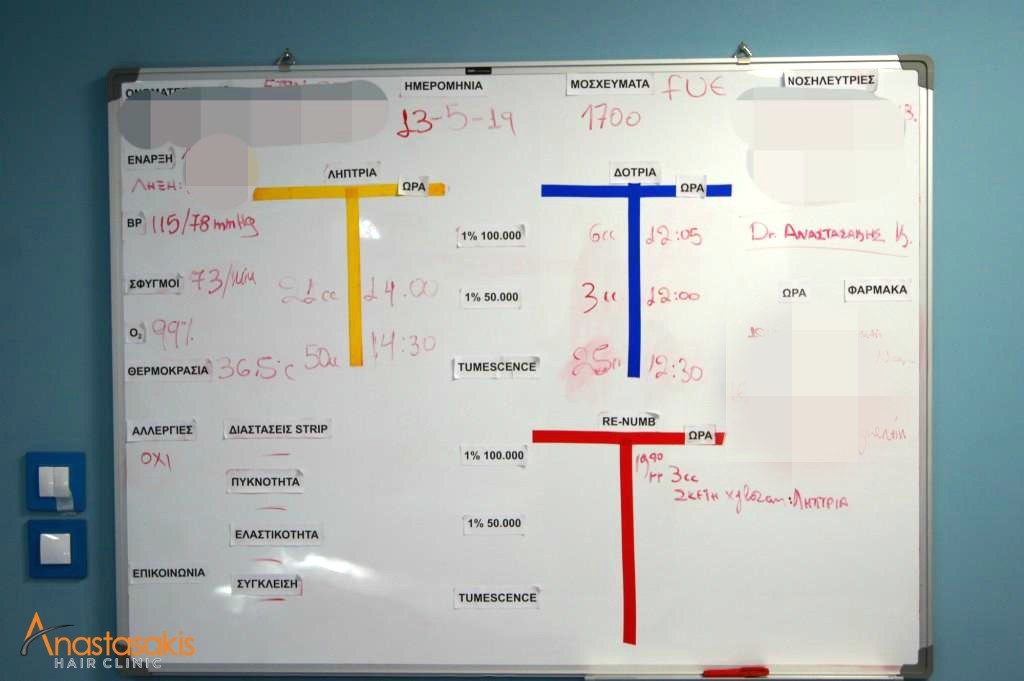 ΗΜΕΡΟΜΗΝΙΑ
ΜΟΣΧΕΥΜΑΤΑ FUE
ΝΟΣΗΛΕΥΤΡΙΕΣ
13-5-19
1700
ΕΝΑΡΞΗ
ΛΗΞΗ:
ΛΗΠΤΡΙΑ
ΩΡΑ
ΔΟΤΡΙΑ
ΩΡΑ
BP 115/78 mmHg
1% 100.000
6cc 12:05
Dr. ΑΝΑΣΤΑΣΑΚΗΣ Κ.
ΣΦΥΓΜΟΙ 73/min
21cc 14.00
1% 50.000
3cc 12:00
ΩΡΑ
ΦΑΡΜΑΚΑ
O₂ 99%
ΘΕΡΜΟΚΡΑΣΙΑ 36,5°C
50cc 14:30
TUMESCENCE
25cc 12:30
ΑΛΛΕΡΓΙΕΣ
ΟΧΙ
ΔΙΑΣΤΑΣΕΙΣ STRIP
ΠΥΚΝΟΤΗΤΑ
ΕΛΑΣΤΙΚΟΤΗΤΑ
ΣΥΓΚΛΕΙΣΗ
ΕΠΙΚΟΙΝΩΝΙΑ
RE-NUMB
ΩΡΑ
1% 100.000
3cc
ΣΚΕΤΗ
ΛΗΠΤΡΙΑ
1% 50.000
TUMESCENCE
Anastasakis
HAIR CLINIC